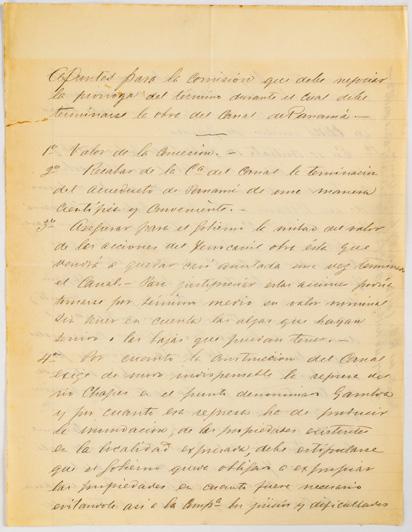 Apuntes para la Comisión que debe negociar
la prórroga del término durante el cual debe
terminarse la obra del Canal de Panamá —
1o Valor de la Concesión. —
2o Recabar de la Cia del Canal la terminación
del acueducto de Panamá de una manera
científica y conveniente. —
3o Asegurar para el Gobierno la mitad del valor
de las acciones del Ferrocarril obra ésta que
vendrá a quedar casi anulada una vez terminado
el Canal — Para justipreciar estas acciones podría
tomarse por término medio su valor nominal
sin tener en cuenta las alzas que hayan
tenido o las bajas que puedan tener. —
4o Por cuanto la construcción del Canal
exige de modo indispensable la represa del
río Chagres en el punto denominado Gamboa
y por cuanto esa represa ha de producir
la inundación de las propiedades existentes
en la localidad expresada, debe estipularse
que el Gobierno quede obligado a expropiar
las propiedades en cuanto fuere necesario
evitándole así a la Compa los juicios y dificultades